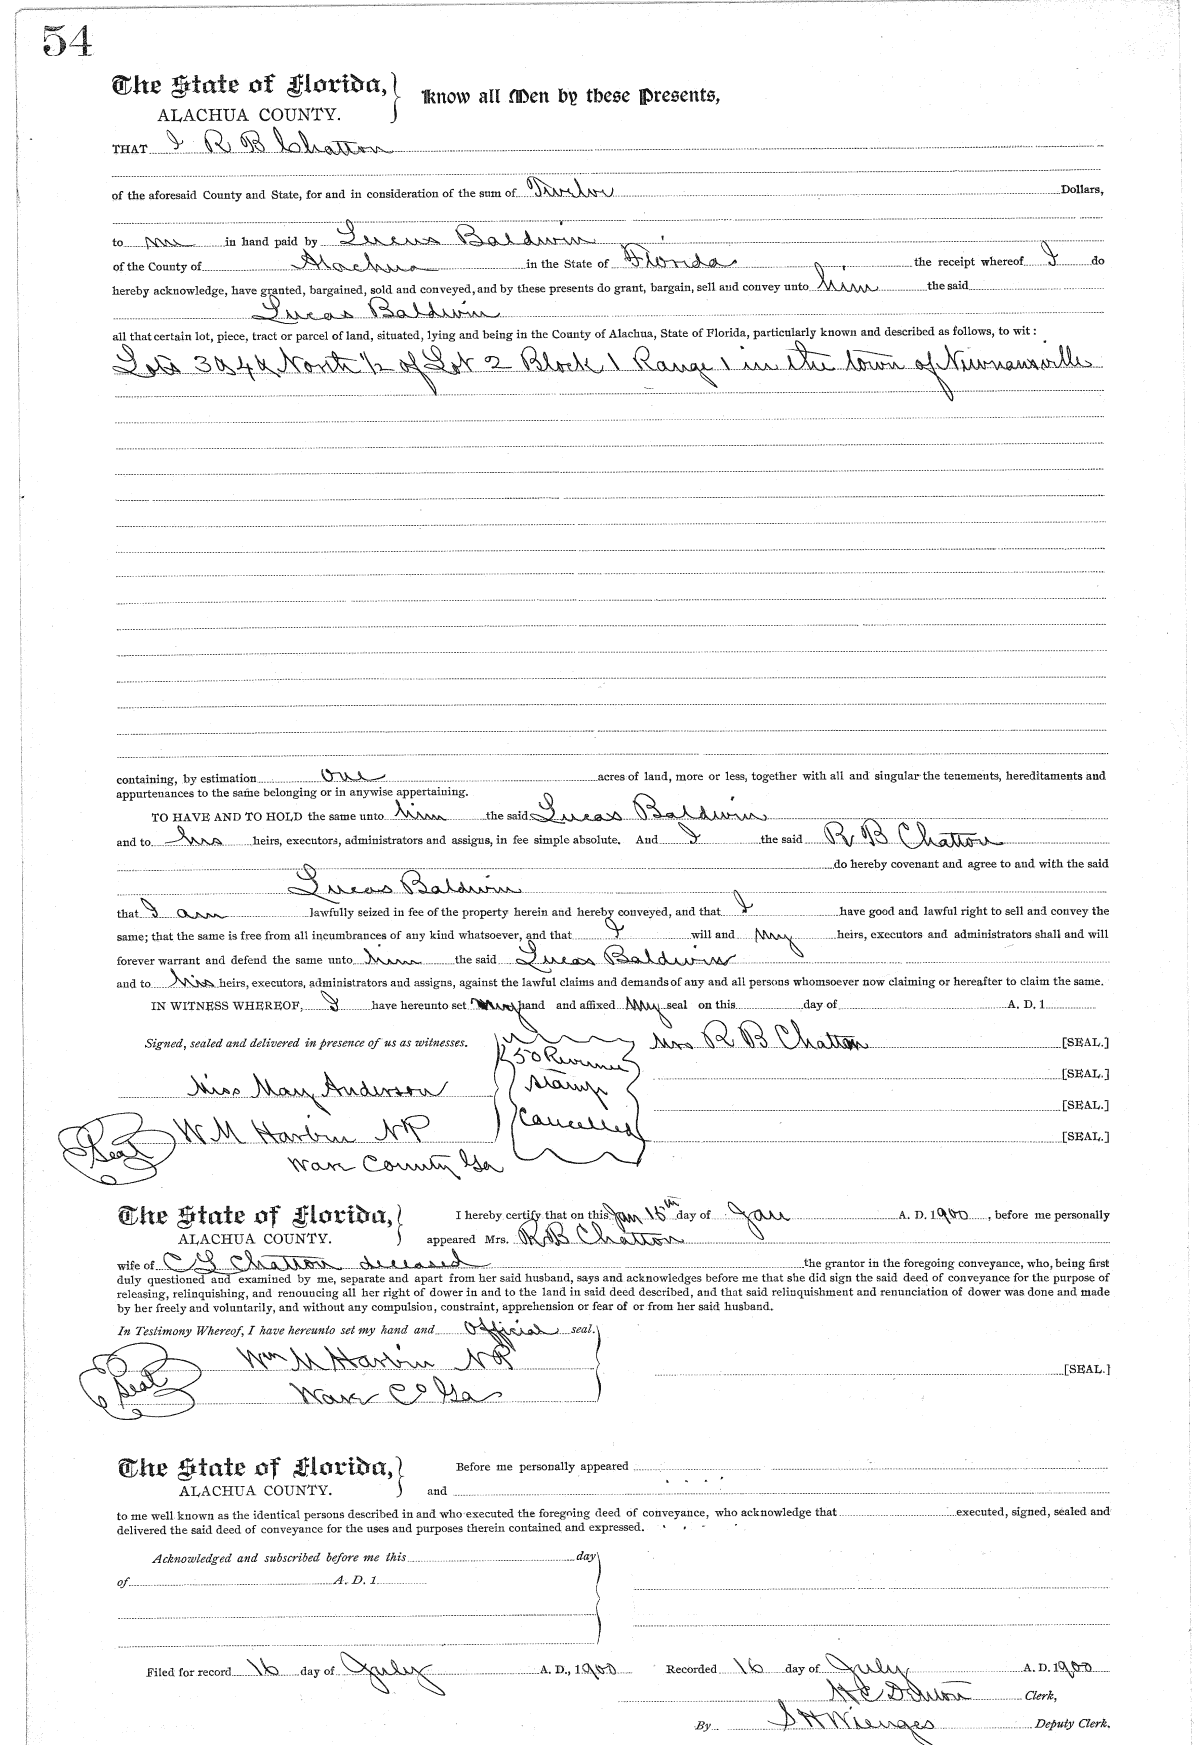 54
The State of Florida, Know all Men by these Presents,
ALACHUA COUNTY.
THAT I R B Chatton
of the aforesaid County and State, for and in consideration of the sum of Twelve Dollars,
to me in hand paid by Lucus Baldwin
of the County of Alachua in the State of Florida the receipt whereof I do
hereby acknowledge, have granted, bargained, sold and conveyed, and by these presents do grant, bargain, sell and convey unto him the said
Lucas Baldwin
all that certain lot, piece, tract or parcel of land, situated, lying and being in the County of Alachua, State of Florida, particularly known and described as follows, to wit:
Lots 3 & 4 & North 1/2 of Lot 2 Block 1 Range 1 in the town of Newnansville
containing, by estimation one acres of land, more or less, together with all and singular the tenements, hereditaments and
appurtenances to the same belonging or in anywise appertaining.
TO HAVE AND TO HOLD the same unto him the said Lucas Baldwin
and to his heirs, executors, administrators and assigns, in fee simple absolute. And I the said R B Chatton
do hereby covenant and agree to and with the said
Lucas Baldwin
that I am lawfully seized in fee of the property herein and hereby conveyed, and that I have good and lawful right to sell and convey the
same; that the same is free from all incumbrances of any kind whatsoever, and that I will and my heirs, executors and administrators shall and will
forever warrant and defend the same unto him the said Lucas Baldwin
and to his heirs, executors, administrators and assigns, against the lawful claims and demands of any and all persons whomsoever now claiming or hereafter to claim the same.
IN WITNESS WHEREOF, I have hereunto set my hand and affixed my seal on this day of A. D. 1
Signed, sealed and delivered in presence of us as witnesses. 50 Revenue Mrs R B Chatton [SEAL.]
Miss May Anderson Stamp [SEAL.]
Cancelled [SEAL.]
Seal W M Harbin N P [SEAL.]
Ware County Ga
The State of Florida, I hereby certify that on this Jan 15th day of Jan A. D. 1900, before me personally
ALACHUA COUNTY. appeared Mrs. R B Chatton
wife of C L Chatton deceased the grantor in the foregoing conveyance, who, being first
duly questioned and examined by me, separate and apart from her said husband, says and acknowledges before me that she did sign the said deed of conveyance for the purpose of
releasing, relinquishing, and renouncing all her right of dower in and to the land in said deed described, and that said relinquishment and renunciation of dower was done and made
by her freely and voluntarily, and without any compulsion, constraint, apprehension or fear of or from her said husband.
In Testimony Whereof, I have hereunto set my hand and official seal.
Wm M Harbin N P [SEAL.]
Seal Ware Co Ga
The State of Florida, Before me personally appeared
ALACHUA COUNTY. and
to me well known as the identical persons described in and who executed the foregoing deed of conveyance, who acknowledge that executed, signed, sealed and
delivered the said deed of conveyance for the uses and purposes therein contained and expressed.
Acknowledged and subscribed before me this day
of A. D. 1
Filed for record 16 day of July A. D., 1900 Recorded 16 day of July A. D. 1900
H C Denton Clerk,
By S H Wienges Deputy Clerk.